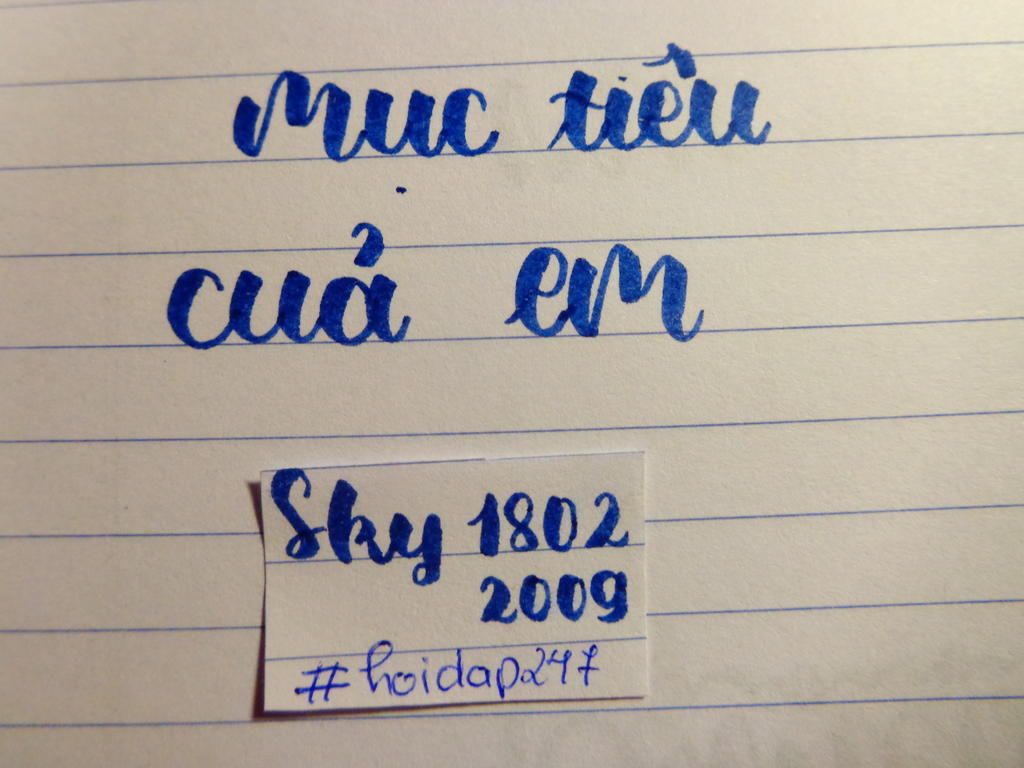 mục tiêu
của em
Sky 1802
2009
#hoidap247